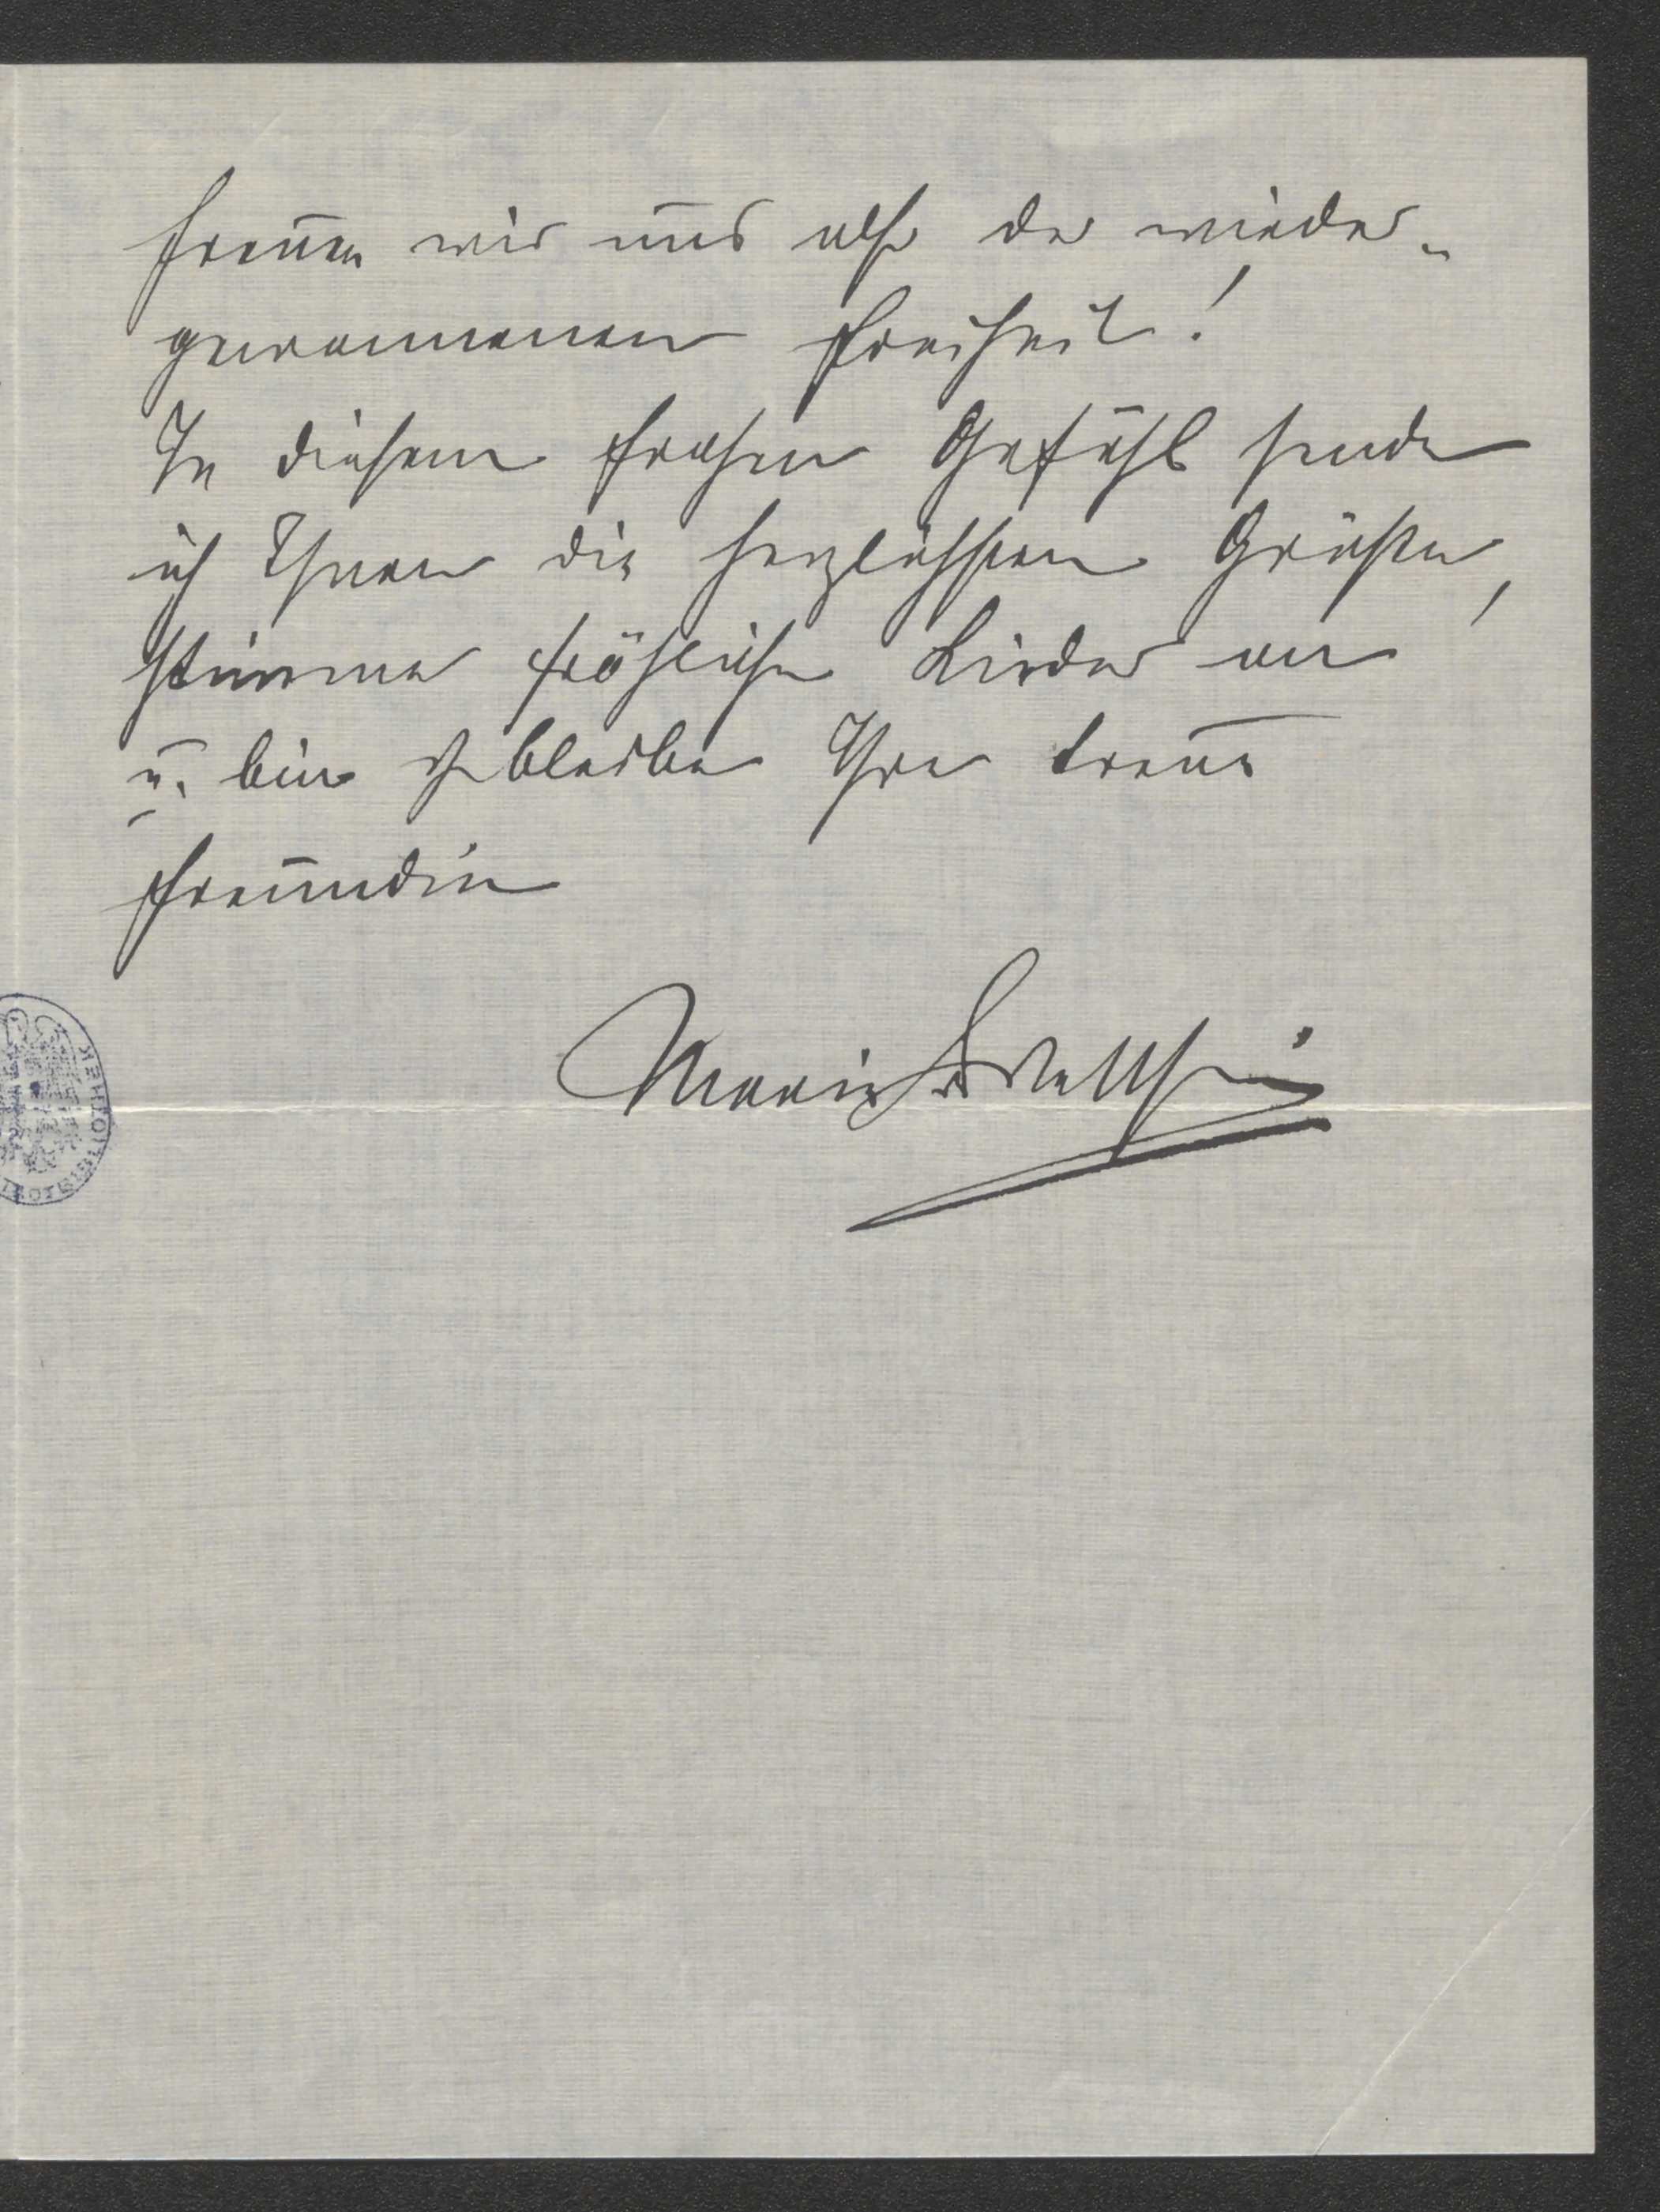 freuen wir uns also der wieder-
gewonnenen Freiheit!
In diesem frohen Gefühl sende
ich Ihnen die herzlichsten Grüße,
stimme fröhliche Lieder an
u. bin & bleibe Ihre treue
Freundin
Marie
BIBLIOTHEK